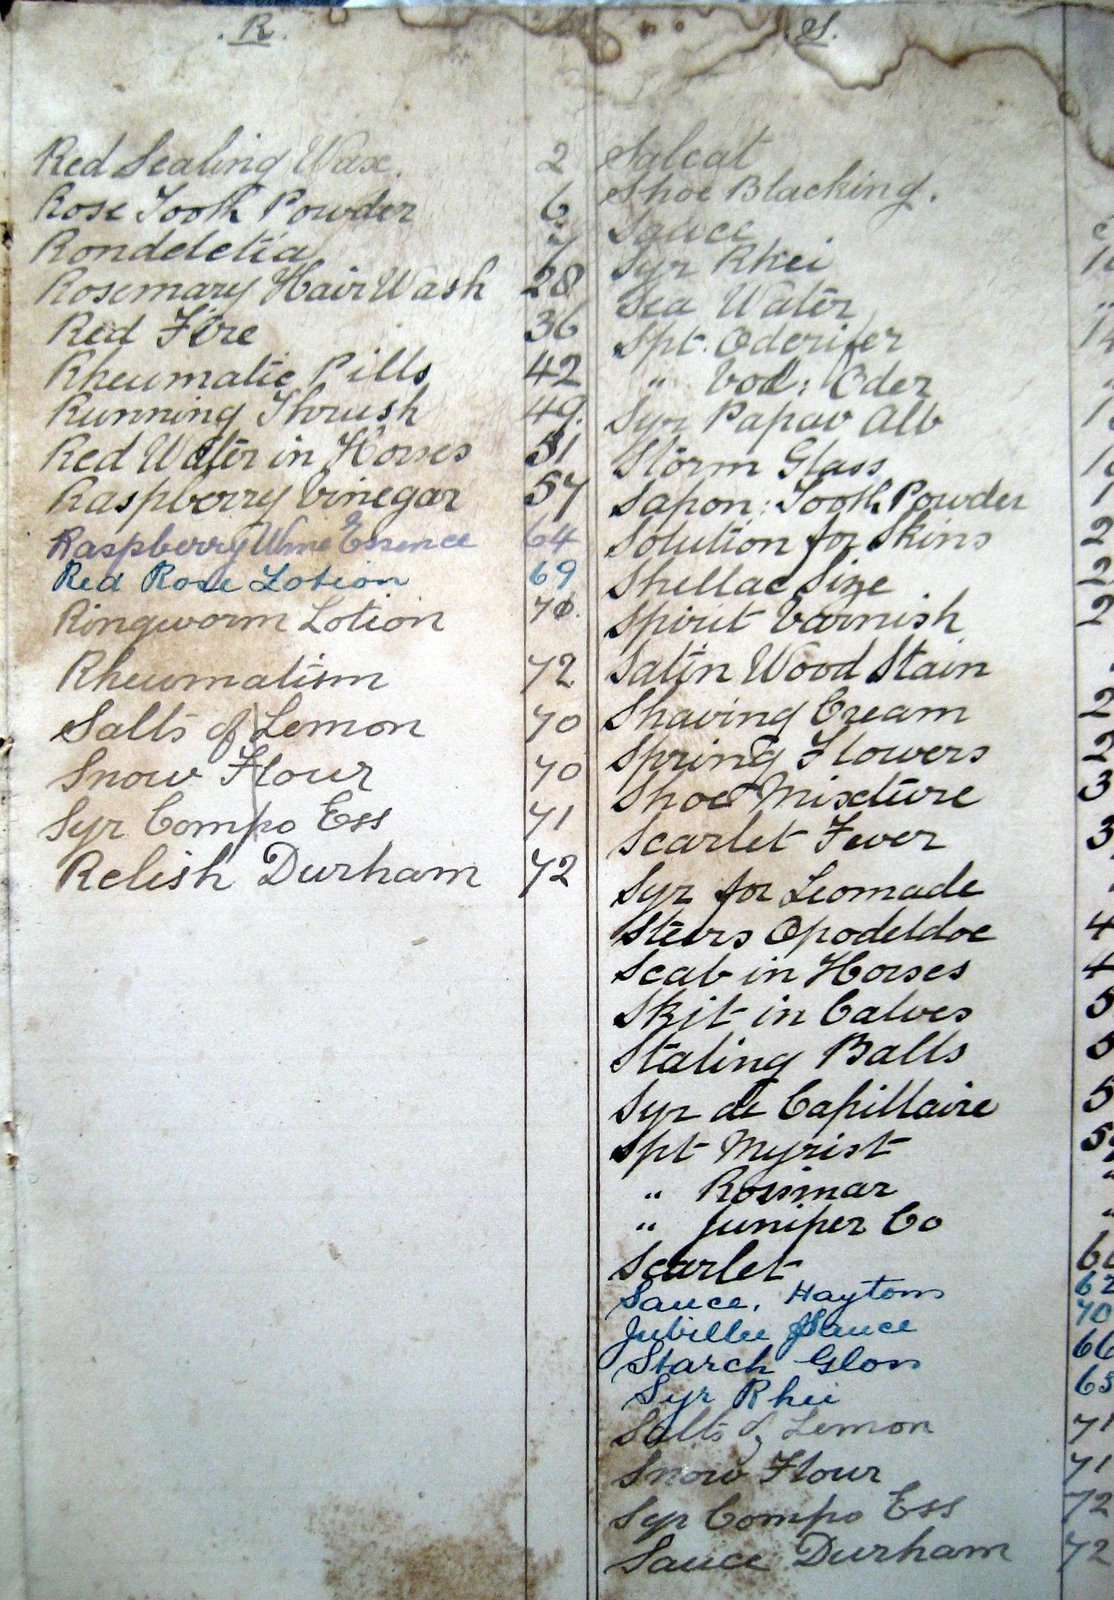 R.
Red Sealing Wax. 2
Rose Tooth Powder 6
Rondeletia 7
Rosemary Hair Wash 28
Red Fire 36
Rheumatic Pills 42
Running Thrush 49.
Red Water in Horses 51
Raspberry Vinegar 57
Raspberry Wine Essence 64
Red Rose Lotion 69
Ringworm Lotion 70.
Rheumatism 72
Salts of Lemon 70
Snow Flour 70
Syr Compo Ess 71
Relish Durham 72
S.
Salcat
Shoe Blacking.
Sauce
Syr Rhei
Sea Water
Spt. Oderifer
" Vod: Oder
Syr Papav Alb
Storm Glass
Sapon: Tooth Powder
Solution for Skins
Shellac Size
Spirit Varnish
Satin Wood Stain
Shaving Cream
Spring Flowers
Shoe Mixture
Scarlet Fever
Syr for Leomade
Steers Opodeldoc
Scab in Horses
Skit in Calves
Staling Balls
Syr de Capillaire
Spt Myrist
" Rosimar
" Juniper Co
Scarlet
Sauce, Haytons 62
Jubillee Sauce 70
Starch Gloss 66
Syr Rhei 63
Salts of Lemon 71
Snow Flour 71
Syr Compo Ess 72
Sauce Durham 72